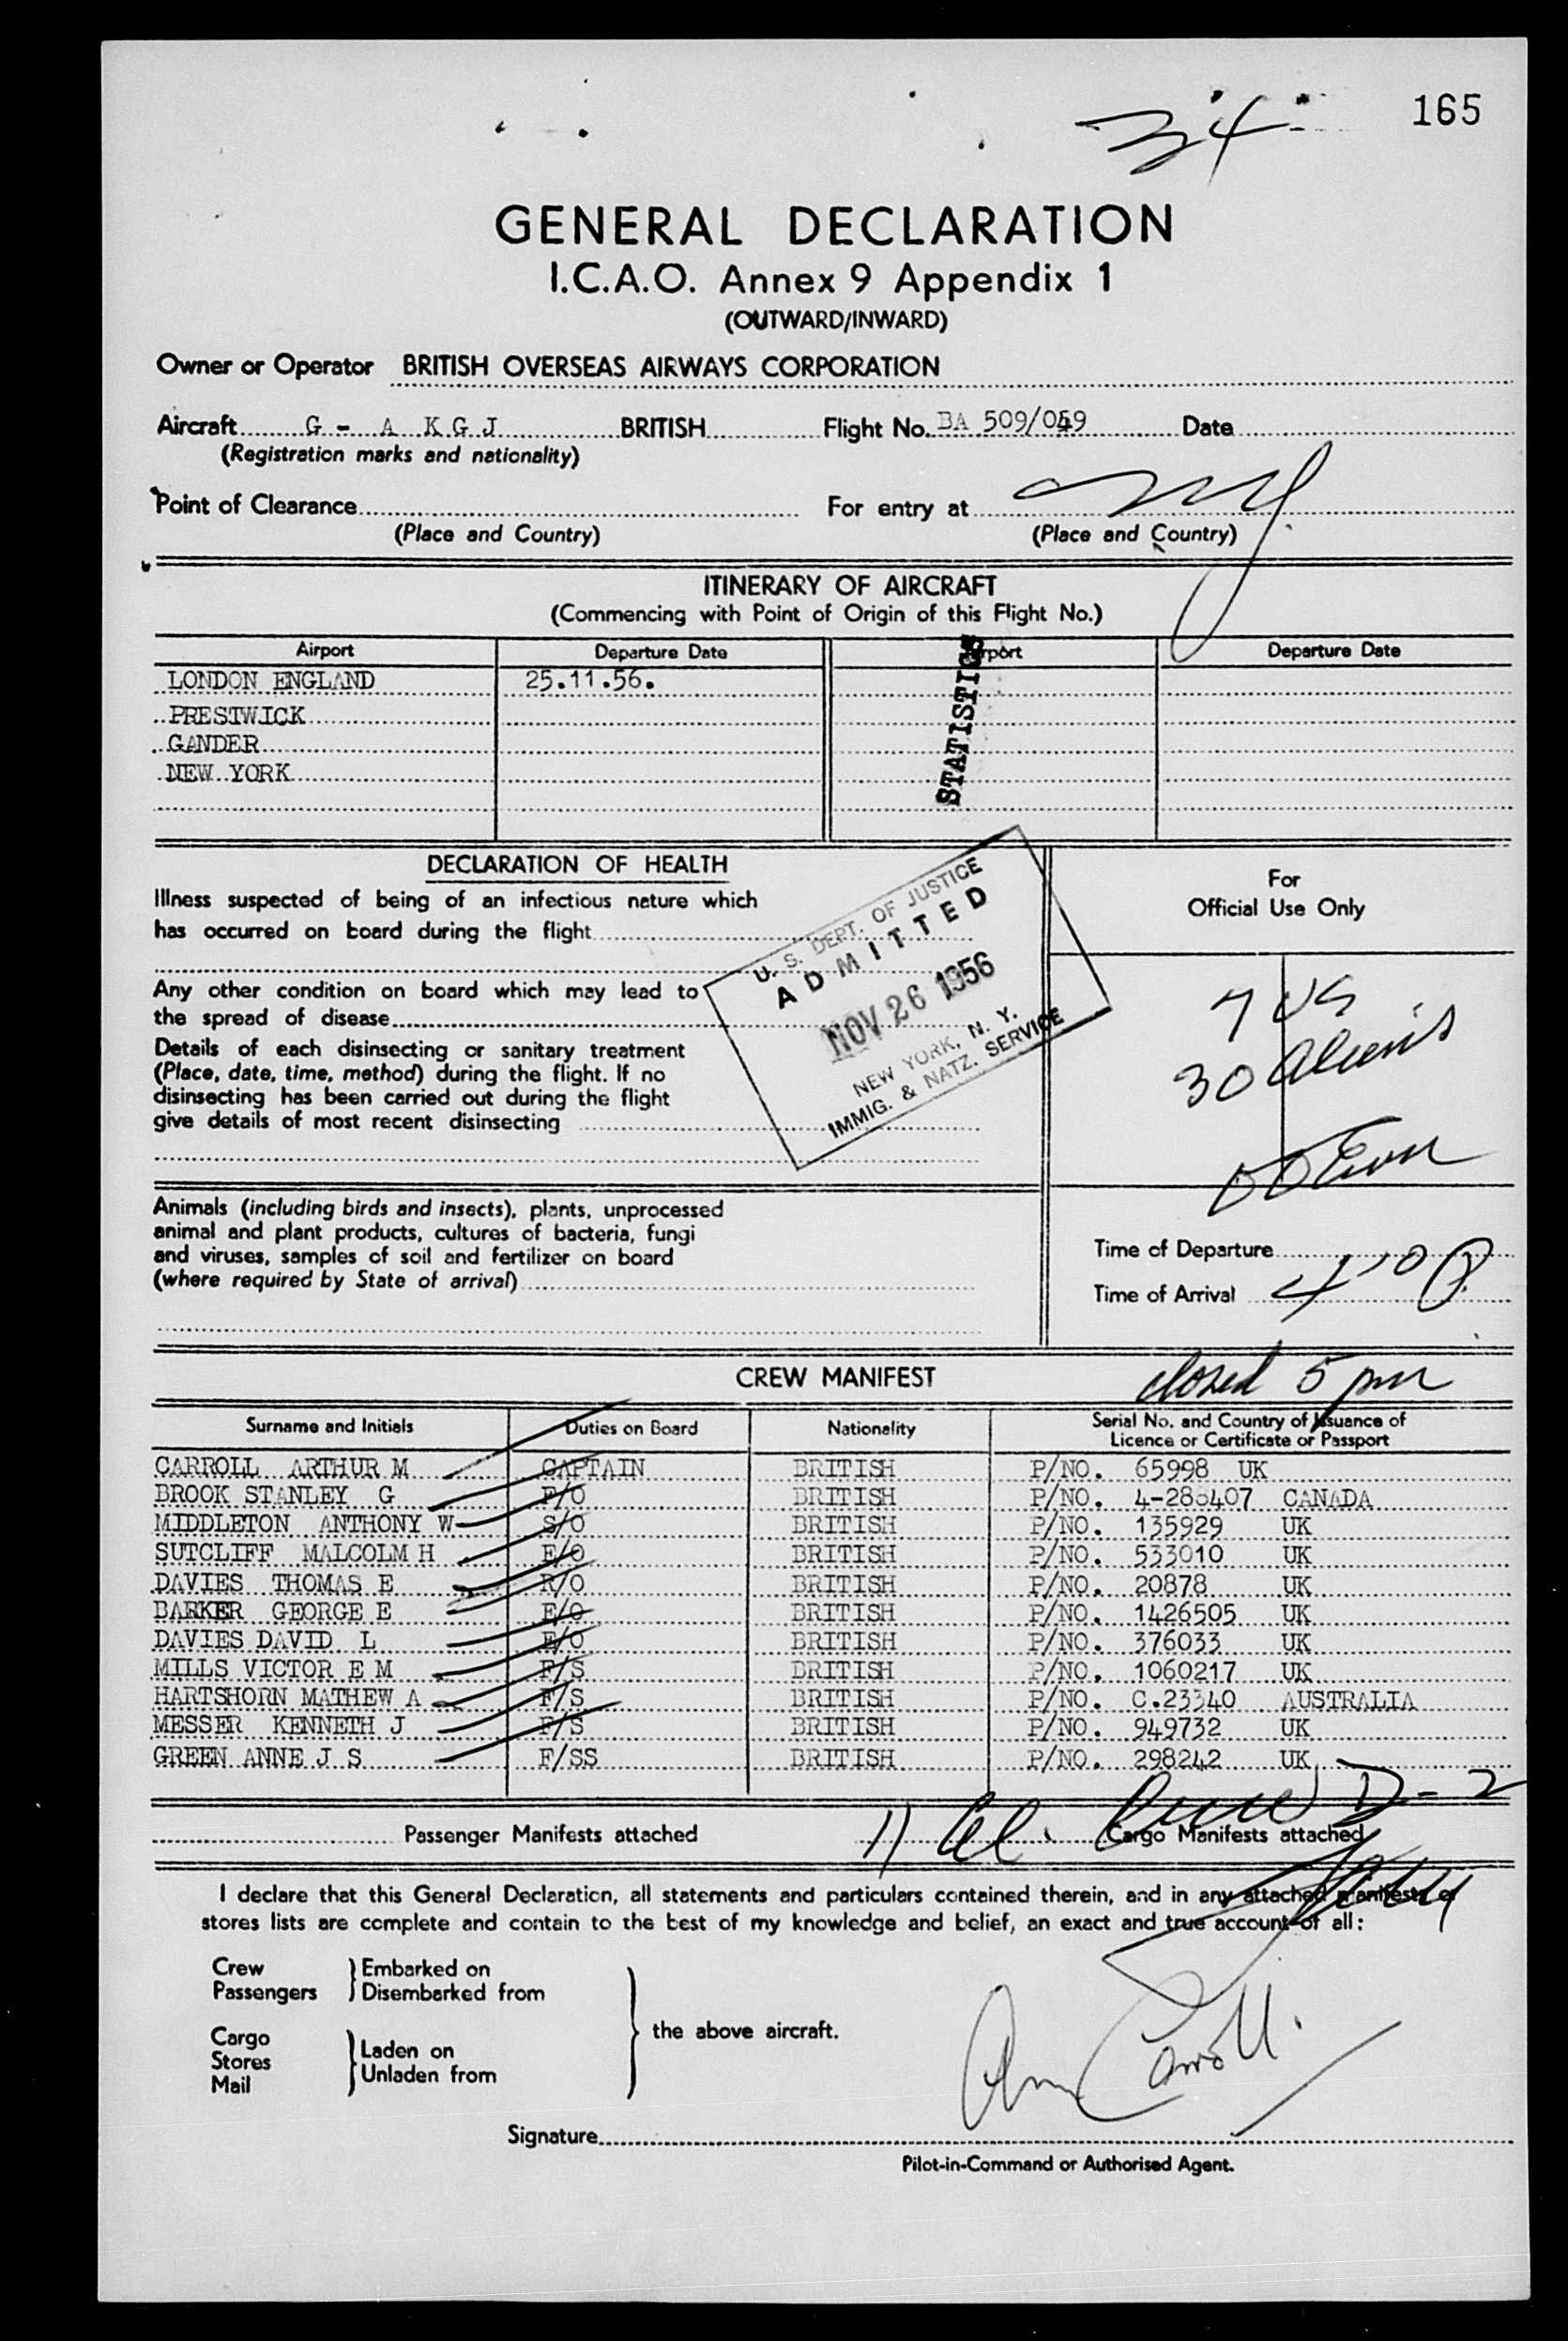 34
165
GENERAL DECLARATION
I.C.A.O. Annex 9 Appendix 1
(OUTWARD/INWARD)
Owner or Operator BRITISH OVERSEAS AIRWAYS CORPORATION
Aircraft G - A K G J BRITISH Flight No. BA 509/049 Date
(Registration marks and nationality)
Point of Clearance For entry at NY
(Place and Country) (Place and Country)
ITINERARY OF AIRCRAFT
(Commencing with Point of Origin of this Flight No.)
Airport Departure Date Airport Departure Date
LONDON ENGLAND 25.11.56.
PRESTWICK
GANDER
NEW YORK
STATISTICS
DECLARATION OF HEALTH
Illness suspected of being of an infectious nature which
has occurred on board during the flight
Any other condition on board which may lead to
the spread of disease
Details of each disinsecting or sanitary treatment
(Place, date, time, method) during the flight. If no
disinsecting has been carried out during the flight
give details of most recent disinsecting
U. S. DEPT. OF JUSTICE
ADMITTED
NOV 26 1956
NEW YORK, N. Y.
IMMIG. & NATZ. SERVICE
For
Official Use Only
7 US
30 Aliens
Animals (including birds and insects), plants, unprocessed
animal and plant products, cultures of bacteria, fungi
and viruses, samples of soil and fertilizer on board
(where required by State of arrival)
Time of Departure
Time of Arrival 4:00 P.
closed 5 pm
CREW MANIFEST
Surname and Initials Duties on Board Nationality Serial No. and Country of Issuance of
Licence or Certificate or Passport
CARROLL ARTHUR M CAPTAIN BRITISH P/NO. 65998 UK
BROOK STANLEY G F/O BRITISH P/NO. CANADA
MIDDLETON ANTHONY W S/O BRITISH P/NO. 135929 UK
SUTCLIFF MALCOLM H BRITISH P/NO. 533010 UK
DAVIES THOMAS E R/O BRITISH P/NO. 20878 UK
BARKER GEORGE E E/O BRITISH P/NO. 1426505 UK
DAVIES DAVID L E/O BRITISH P/NO. 376033 UK
MILLS VICTOR E M F/S BRITISH P/NO. 1060217 UK
HARTSHORN MATHEW A F/S BRITISH P/NO. C.23340 AUSTRALIA
MESSER KENNETH J F/S BRITISH P/NO. 949732 UK
GREEN ANNE J S F/SS BRITISH P/NO. 298242 UK
11 al. Crew D-2
Passenger Manifests attached Cargo Manifests attached
I declare that this General Declaration, all statements and particulars contained therein, and in any attached manifests or
stores lists are complete and contain to the best of my knowledge and belief, an exact and true account of all:
Crew
Passengers
Embarked on
Disembarked from
Cargo
Stores
Mail
Laden on
Unladen from
the above aircraft.
Carroll
Signature
Pilot-in-Command or Authorised Agent.